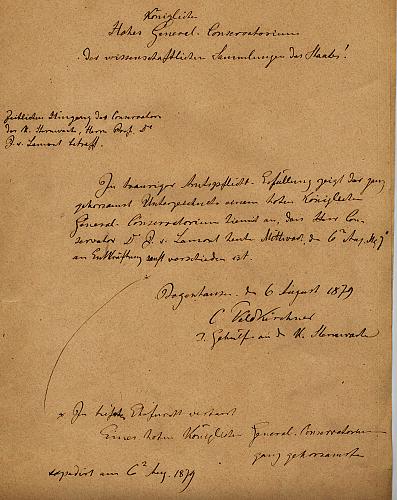 Königliches
Hohes General-Conservatorium
der wissenschaftlichen Sammlungen des Staates!
Zeitlichen Hingang des Conservators
der K. Sternwarte, Herrn Prof. Dr
J. v. Lamont betreff.
In trauriger Amtspflicht-Erfüllung zeigt der ganz
gehorsamst Unterzeichnete einem hohen Königlichen
General-Conservatorium hiemit an, dass Herr Con-
servator Dr J. v. Lamont heute Mittwoch, den 6ten Aug.
an Entkräftung sanft verschieden ist.
Bogenhausen, den 6. August 1879
C. Feldkirchner
I. Gehülfe an der K. Sternwarte
x In tiefster Ehrfurcht verharrt
Eines hohen Königlichen General-Conservatoriums
ganz gehorsamster
expedirt am 6ten Aug. 1879